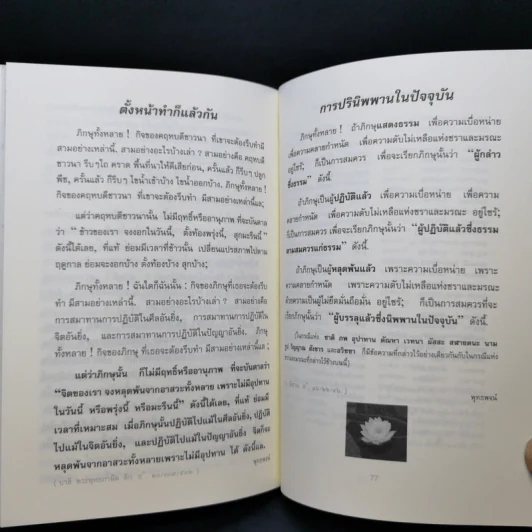 ตั้งหน้าทำก็แล้วกัน
ภิกษุทั้งหลาย ! กิจของคฤหบดีชาวนา ที่เขาจะต้องรีบทำมี
สามอย่างเหล่านี้. สามอย่างอะไรบ้างเล่า ? สามอย่างคือ คฤหบดี
ชาวนา รีบๆไถ คราด พื้นที่นาให้ดีเสียก่อน, ครั้นแล้ว ก็รีบๆ ปลูก
พืช, ครั้นแล้ว ก็รีบๆ ไขน้ำเข้าบ้าง ไขน้ำออกบ้าง. ภิกษุทั้งหลาย !
กิจของคฤหบดีชาวนา ที่เขาจะต้องรีบทำ มีสามอย่างเหล่านี้แล;
แต่ว่าคฤหบดีชาวนานั้น ไม่มีฤทธิ์หรืออานุภาพ ที่จะบันดาล
ว่า "ข้าวของเรา จงงอกในวันนี้, ตั้งท้องพรุ่งนี้, สุกมะรืนนี้"
ดังนี้ได้เลย, ที่แท้ ย่อมมีเวลาที่ข้าวนั้น เปลี่ยนแปรสภาพไปตาม
ฤดูกาล ย่อมจะงอกบ้าง ตั้งท้องบ้าง สุกบ้าง;
ภิกษุทั้งหลาย ! ฉันใดก็ฉันนั้น : กิจของภิกษุที่เธอจะต้องรีบ
ทำ มีสามอย่างเหล่านี้. สามอย่างอะไรบ้างเล่า ? สามอย่างคือ
การสมาทานการปฏิบัติในศีลอันยิ่ง, การสมาทานการปฏิบัติใน
จิตอันยิ่ง, และการสมาทานการปฏิบัติในปัญญาอันยิ่ง. ภิกษุ
ทั้งหลาย ! กิจของภิกษุ ที่เธอจะต้องรีบทำ มีสามอย่างเหล่านี้แล;
แต่ว่าภิกษุนั้น ก็ไม่มีฤทธิ์หรืออานุภาพ ที่จะบันดาลว่า
"จิตของเรา จงหลุดพ้นจากอาสวะทั้งหลาย เพราะไม่มีอุปทาน
ในวันนี้ หรือพรุ่งนี้ หรือมะรืนนี้" ดังนี้ได้เลย, ที่แท้ ย่อมมี
เวลาที่เหมาะสม เมื่อภิกษุนั้นปฏิบัติไปแม้ในศีลอันยิ่ง, ปฏิบัติ
ไปแม้ในจิตอันยิ่ง, และปฏิบัติไปแม้ในปัญญาอันยิ่ง จิตก็จะ
หลุดพ้นจากอาสวะทั้งหลายเพราะไม่มีอุปทาน ได้ ดังนี้แล.
พุทธพจน์
การปรินิพพานในปัจจุบัน
ภิกษุทั้งหลาย ! ถ้าภิกษุแสดงธรรม เพื่อความเบื่อหน่าย
เพื่อความคลายกำหนัด เพื่อความดับไม่เหลือแห่งชราและมรณะ
อยู่ไซร้; ก็เป็นการสมควร เพื่อจะเรียกภิกษุนั้นว่า "ผู้กล่าว
ซึ่งธรรม" ดังนี้.
ถ้าภิกษุเป็นผู้ปฏิบัติแล้ว เพื่อความเบื่อหน่าย เพื่อความ
คลายกำหนัด เพื่อความดับไม่เหลือแห่งชราและมรณะ อยู่ไซร้;
ก็เป็นการสมควร เพื่อจะเรียกภิกษุนั้นว่า "ผู้ปฏิบัติแล้วซึ่งธรรม
ตามสมควรแก่ธรรม" ดังนี้.
ถ้าภิกษุเป็นผู้หลุดพ้นแล้ว เพราะความเบื่อหน่าย เพราะ
ความคลายกำหนัด เพราะความดับไม่เหลือแห่งชราและมรณะ
ด้วยความเป็นผู้ไม่ยึดมั่นถือมั่น อยู่ไซร้; ก็เป็นการสมควรที่จะ
เรียกภิกษุนั้นว่า "ผู้บรรลุแล้วซึ่งนิพพานในปัจจุบัน" ดังนี้.
(ในกรณีแห่ง ชาติ ภพ อุปาทาน ตัณหา เวทนา ผัสสะ สฬายตนะ นาม
รูป วิญญาณ สังขาร และอวิชชา ก็มีข้อความที่กล่าวไว้อย่างเดียวกันกับในกรณีแห่ง
ชราและมรณะที่กล่าวไว้ข้างบนนี้)
พุทธพจน์
77